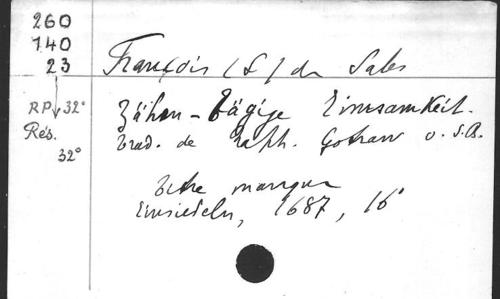 260
140
23
François (S) de Sales
RP 32°
Zähen-Tägige Einsamkeit.
Rés.
Trad. de Raph. Gotrau o. S. A.
32°
Titre manque
Einsiedeln, 1687, 16°